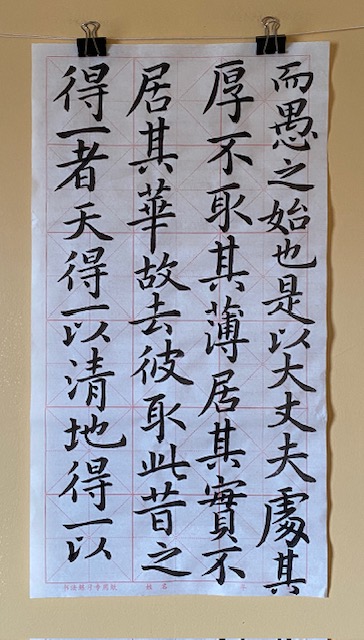 而愚之始也是以大丈夫處其
厚不取其薄居其實不
居其華故去彼取此昔之
得一者天得一以清地得一以
书法练习专用纸
姓名